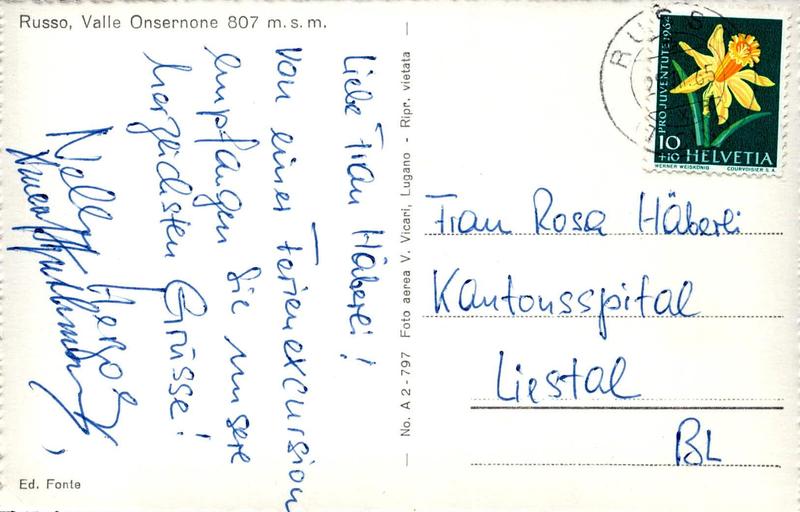 Russo, Valle Onsernone 807 m.s.m.
Liebe Frau Häberli!
Von einer Ferienexcursion
empfangen Sie unsere
herzlichsten Grüsse!
Nelly
Ed. Fonte
No. A 2-797 Foto aerea V. Vicari, Lugano - Ripr. vietata
RUSSO
PRO JUVENTUTE 1964
10
+10 HELVETIA
WERNER WEISKÖNIG COURVOISIER S.A.
Frau Rosa Häberli
Kantonsspital
Liestal
BL